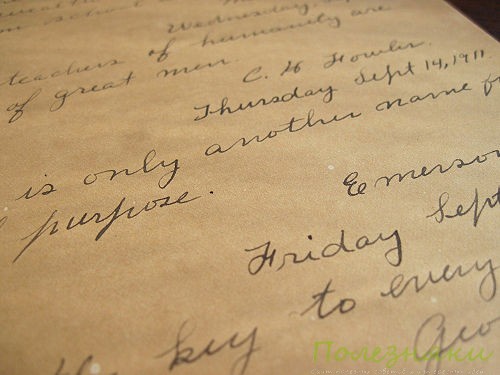 school
Wednesday, Sep
teachers of humanity are
of great men.
C. H. Fowler.
Thursday Sept 14, 1911.
is only another name f
purpose.
Emerson
Friday Sept
the key to every
Geo
Полезняки